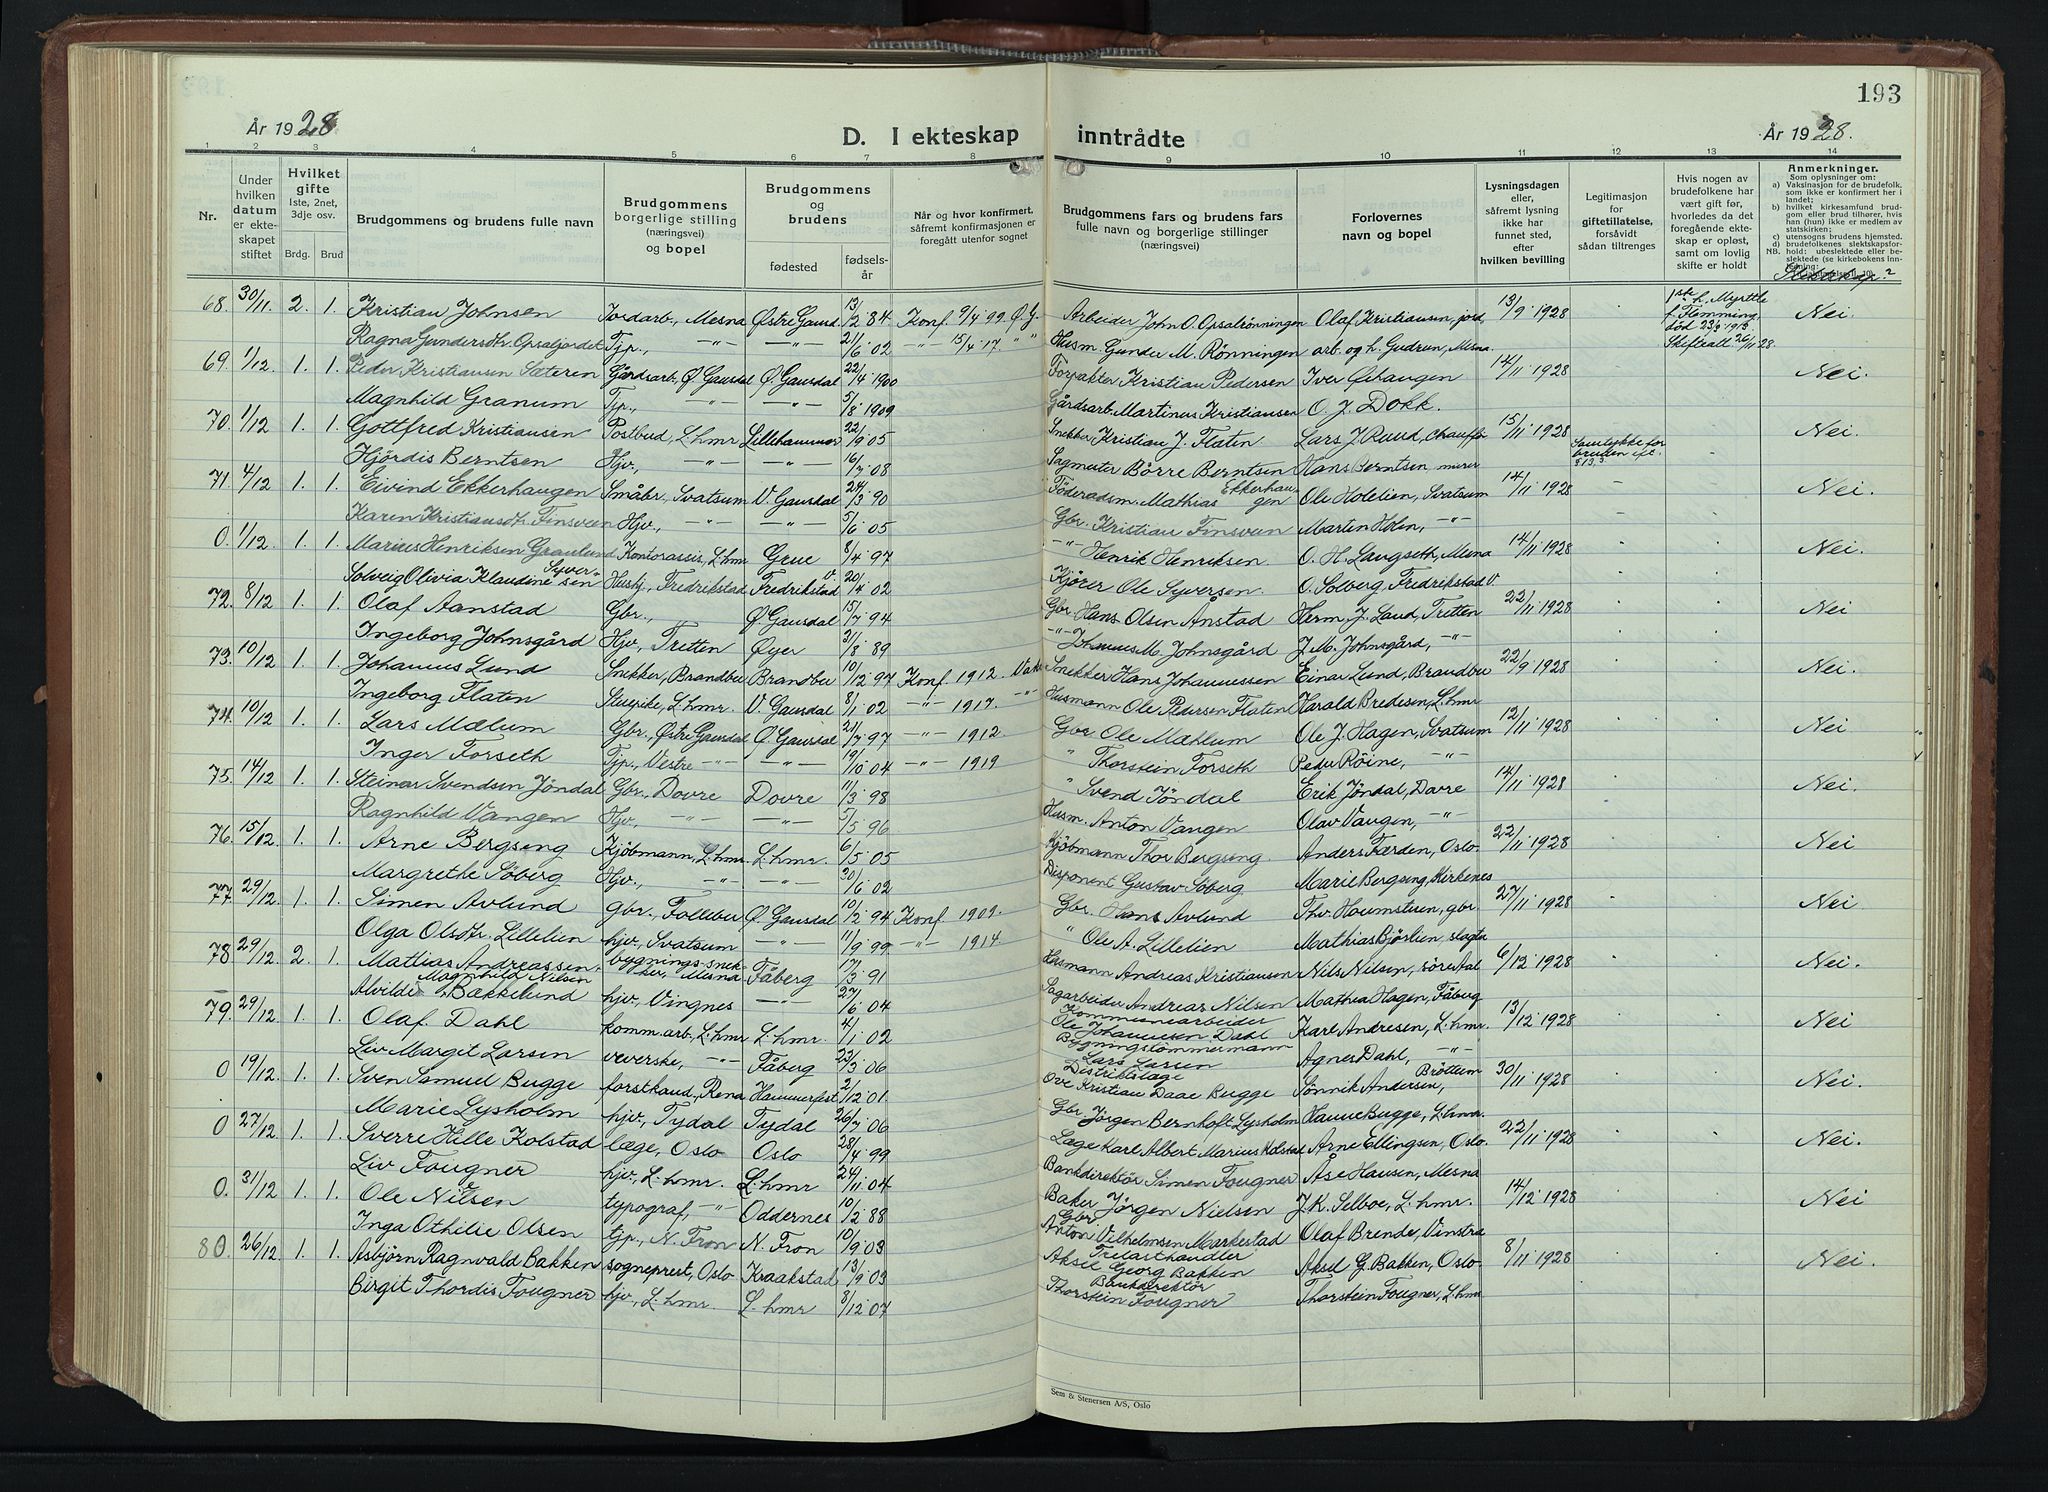 193
År 1928
D. I ekteskap inntrådte
År 1928.
1 2 3 4 5 6 7 8 9 10 11 12 13 14
Nr.
Under hvilken datum er ekteskapet stiftet
Hvilket gifte 1ste, 2net, 3dje osv.
Brdg. Brud
Brudgommens og brudens fulle navn
Brudgommens borgerlige stilling (næringsvei) og bopel
Brudgommens og brudens
fødested
fødselsår
Når og hvor konfirmert, såfremt konfirmasjonen er foregått utenfor sognet
Brudgommens fars og brudens fars fulle navn og borgerlige stillinger (næringsvei)
Forlovernes navn og bopel
Lysningsdagen eller, såfremt lysning ikke har funnet sted, efter hvilken bevilling
Legitimasjon for giftetillatelse, forsåvidt sådan tiltrenges
Hvis nogen av brudefolkene har vært gift før, hvorledes da det foregående ekteskap er opløst, samt om lovlig skifte er holdt
Anmerkninger.
Som oplysninger om:
a) Vaksinasjon for de brudefolk, som ikke er konfirmert her i landet;
b) hvilket kirkesamfund brudgom eller brud tilhører, hvis han (hun) ikke er medlem av statskirken;
c) utensogns brudens hjemsted.
d) brudefolkenes slektskapsforhold: ubeslektede eller beslektede
Slektskap?
68. 30/11 2. 1. Kristian Johnsen Jordarb., Mesna Østre Gausd. 13/2 84 Konf. 9/4 99. Ø. G. Arbeider John O. Opsalrönningen Olaf Kristiansen, jord 13/9 1928 1ste h. Myrttle f. Flemming. död 23/9 1913. Skifteatt. 26/11 28. Nei.
Ragna Gundersdtr. Opsaljordet Tjp., —"— —"— 21/6 02 —"— 15/4 17. " " Husm. Gunder M. Rönningen arb. og h. Gudrun, Mesna.
69. 1/12 1. 1. Peder Kristiansen Sæteren Gårdsarb., Ø. Gausdal Ø. Gausdal 22/4 1900 Forpakter Kristian Pedersen Iver Öihaugen 14/11 1928 Nei.
Magnhild Granum Tjp., —"— —"— 5/8 1909 Gårdsarb. Martinus Kristiansen O. J. Dokk.
70. 1/12 1. 1. Gottfred Kristiansen Postbud, L.hmr Lillehammer 22/9 05 Snekker Kristian J. Flaten Lars J. Ruud, Chaufför 15/11 1928 Samtykke for bruden Nei.
Hjördis Berntsen Hjv., —"— —"— 16/7 08 Sagmester Börre Berntsen Hans Berntsen, murer
71. 4/12 1. 1. Eivind Ekkerhaugen Småbr., Svatsum V. Gausdal 24/3 90 Föderaadsm. Mathias Ekkerhaugen Ole Holelien, Svatsum 14/11 1928 Nei.
Karen Kristiansdtr. Finsveen Hjv., —"— —"— 5/6 05 Gbr. Kristian Finsveen Martin Holen, —"—
0. 1/12 1. 1. Marius Henriksen Granlund Kontorassis., L.hmr Grue 8/4 97 —"— Henrik Henriksen O. H. Langseth, Mesna 14/11 1928 Nei.
Solveig Olivia Klaudine Syversen Hushj., Fredrikstad V. Fredrikstad 20/4 02 Kjörer Ole Syversen. O. Solberg, Fredrikstad V.
72. 8/12 1. 1. Olaf Aanstad Gbr., Ø. Gausdal 15/7 94 Gbr. Hans Olsen Ånstad Herm. J. Lund, Tretten 22/11 1928 Nei
Ingeborg Johnsgård Hjv., Tretten Øyer 31/8 89 —"— Johannes M. Johnsgård J. M. Johnsgård, —"—
73. 10/12 1. 1. Johannes Lund Snekker, Brandbu Brandbu 10/12 97 Konf. 1912. Snekker Hans Johannessen Einar Lund, Brandbu 22/9 1928 Nei.
Ingeborg Flaten Stuepike, L.hmr. V. Gausdal 8/1 02 —"— 1917. —"— Husmann Ole Pedersen Flaten Harald Bredesen, L.hmr
74. 10/12 1. 1. Lars Mælum Gbr., Østre Gausdal Ø. Gausdal 21/7 97 —"— 1912 Gbr Ole Mæhlum Ole J. Hagen, Svatsum 12/11 1928 Nei
Inger Forseth Tjp., Vestre —"— —"— 19/10 04 —"— 1919 " Thorstein Forseth Peder Röine, —"—
75. 14/12 1. 1. Steinar Svendsen Jöndal Gbr., Dovre Dovre 11/3 98 " Svend Jöndal Erik Jöndal, Dovre 14/11 1928 Nei.
Ragnhild Vangen Hjv., —"— —"— 5/5 96 Husm. Anton Vangen Olav Vangen, —"—
76. 15/12 1. 1. Arne Bergseng Kjöbmann, L.hmr. L.hmr. 6/5 05 Kjöbmann Thor Bergseng. Anders Færden, Oslo. 22/11 1928 Nei
Margrethe Söberg Hjv., —"— —"— 30/6 02 Disponent Gustav Söberg Marie Bergseng, Kirkenes
77. 29/12 1. 1. Simen Avlund gbr., Follebu Ø. Gausdal 10/2 94 Konf. 1909. Gbr. Hans Avlund Thv. Haumstuen, gbr. 27/11 1928 Nei.
Olga Olsdtr. Lillelien hjv., Svatsum —"— 11/9 99 —"— 1914. " Ole A. Lillelien Mathias Björlien, slagta
78 29/12 2. 1. Mattias Andreassen bygnings-snekker, Mesna Fåberg 17/3 91 Husmann Andreas Kristiansen Nils Nilsen, söre Aal 6/12 1928 Nei.
Alvilde Magnhild Nilsen Bækkelund hjv., Vingnes —"— 27/6 04 Sagarbeider Andreas Nilsen Mathea Hagen, Fåberg
79. 29/12 1. 1. Olaf Dahl komm. arb., L.hmr L.hmr. 4/1 02 Kommunearbeider Ole Johannesen Dahl Karl Andresen, L.hmr. 13/12 1928 Nei
Liv Margit Larsen veverske, —"— Fåberg 22/3 06 Bygningstömmermann Lars Larsen Agnes Dahl, —"—
0 19/12 1. 1. Sven Samuel Bugge forstkand., Rena Hammerfest 2/12 01 Distriktslæge Ove Kristian Daae Bugge Sönnik Andersen, Bröttum 30/11 1928 Nei.
Marie Lysholm hjv., Tydal Tydal 26/7 06 Gbr. Jörgen Bernhoft Lysholm Hanne Bugge, L.hmr.
0 27/12 1. 1. Sverre Hille Kolstad læge, Oslo Oslo 28/4 99 Læge Karl Albert Marius Kolstad Arne Ellingsen, Oslo. 22/11 1928 Nei.
Liv Fougner hjv., L.hmr. L.hmr 24/11 04 Bankdirektör Simen Fougner Åse Hansen, Mesna
0. 31/12 1. 1. Ole Nielsen typograf, —"— Oddernes 10/2 88 Baker Jörgen Nielsen J. K. Selboe, L.hmr. 14/12 1928 Nei
Inga Othilie Olsen tjp., N. Fron N. Fron 10/9 03 Gbr. Anton Vilhelmsen Markestad Olaf Brende, Vinstra
80. 26/12 1. 1. Asbjörn Ragnvald Bakken sogneprest, Oslo Kraakstad 13/9 03 Trelasthandler Aksel Georg Bakken Aksel G. Bakken, Oslo. 8/11 1928 Nei.
Birgit Thordis Fougner hjv., L.hmr. L.hmr 8/12 07 Bankdirektör Thorstein Fougner Thorstein Fougner, L.hmr
Sem & Stenersen A/S, Oslo